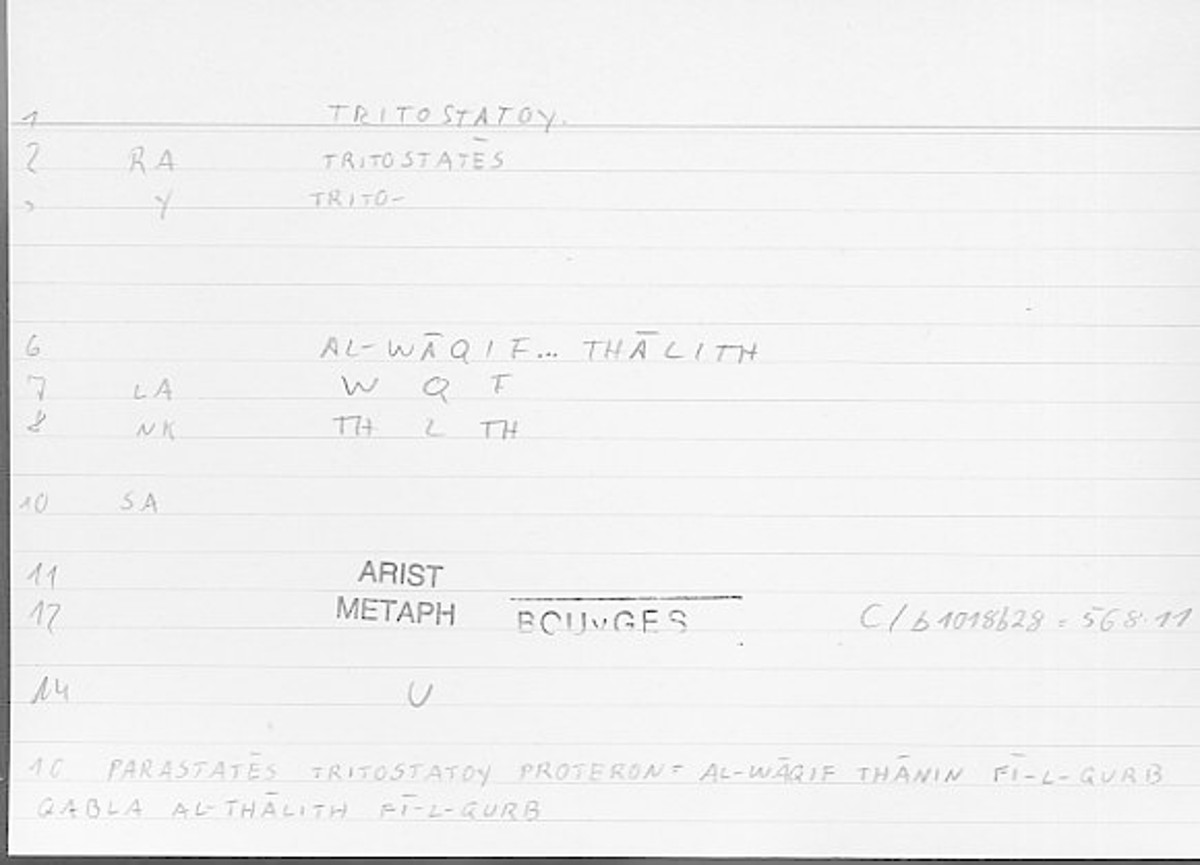 1 TRITOSTATOY.
2 RA TRITOSTATĒS
Y TRITO-
6 AL-WĀQIF... THĀLITH
7 LA W Q F
8 NK TH L TH
10 SA
11 ARIST
12 METAPH BOUYGES C/b1018b28=568.11
14 U
PARASTATĒS TRITOSTATOY PROTERON= AL-WĀQIF THĀNIN FĪ-L-QURB
QABLA AL-THĀLITH FĪ-L-QURB